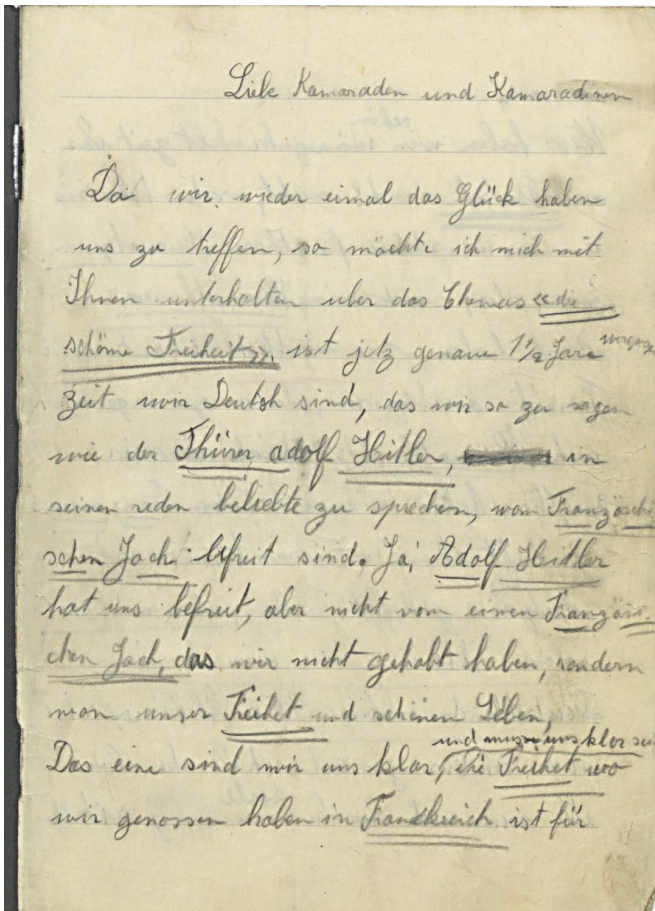 Liebe Kamaraden und Kamaradinen
Da wir wieder eimal das Glück haben
uns zu treffen, so möchte ich mich mit
Ihnen unterhalten uber das Themas «die
schöne Freiheit». ist jetz genaue 1½ Jare
Zeit wir Deutsh sind, das wir so zu sagen
wie der Führer Adolf Hitler, in
seinen reden beliebte zu sprechen, vom Französchi
schen Joch befreit sind. Ja, Adolf Hitler
hat uns befreit, aber nicht vom einen Französi
chen Joch, das wir nicht gehabt haben, sondern
von unser Freihet und schenen Lében,
und muss uns klar sei
Das eine sind wir uns klar, die Freihet wo
wir genossen haben in Frankreich ist für